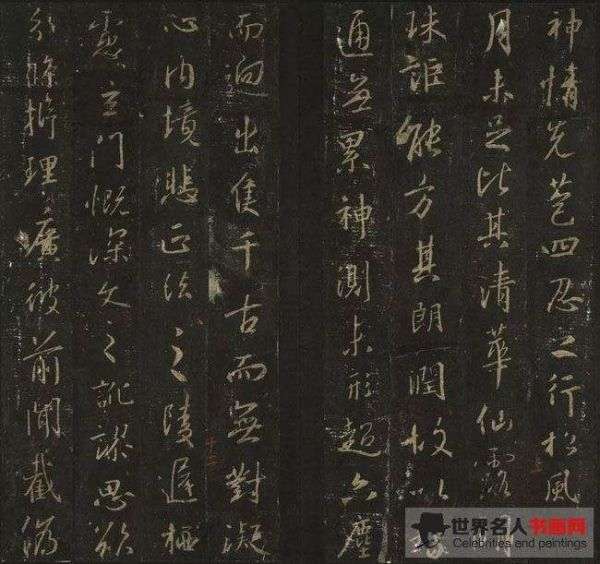 神情先苞四忍之行松風
月未足比其清華仙露
珠詎能方其朗潤故以
通無累神測未形超六塵
而迥出隻千古而無對凝
心內境悲正法之陵遲栖
慮玄門慨深文之訛謬思欲
分條析理廣彼前聞截偽
世界名人书画网
Celebrities end paintings